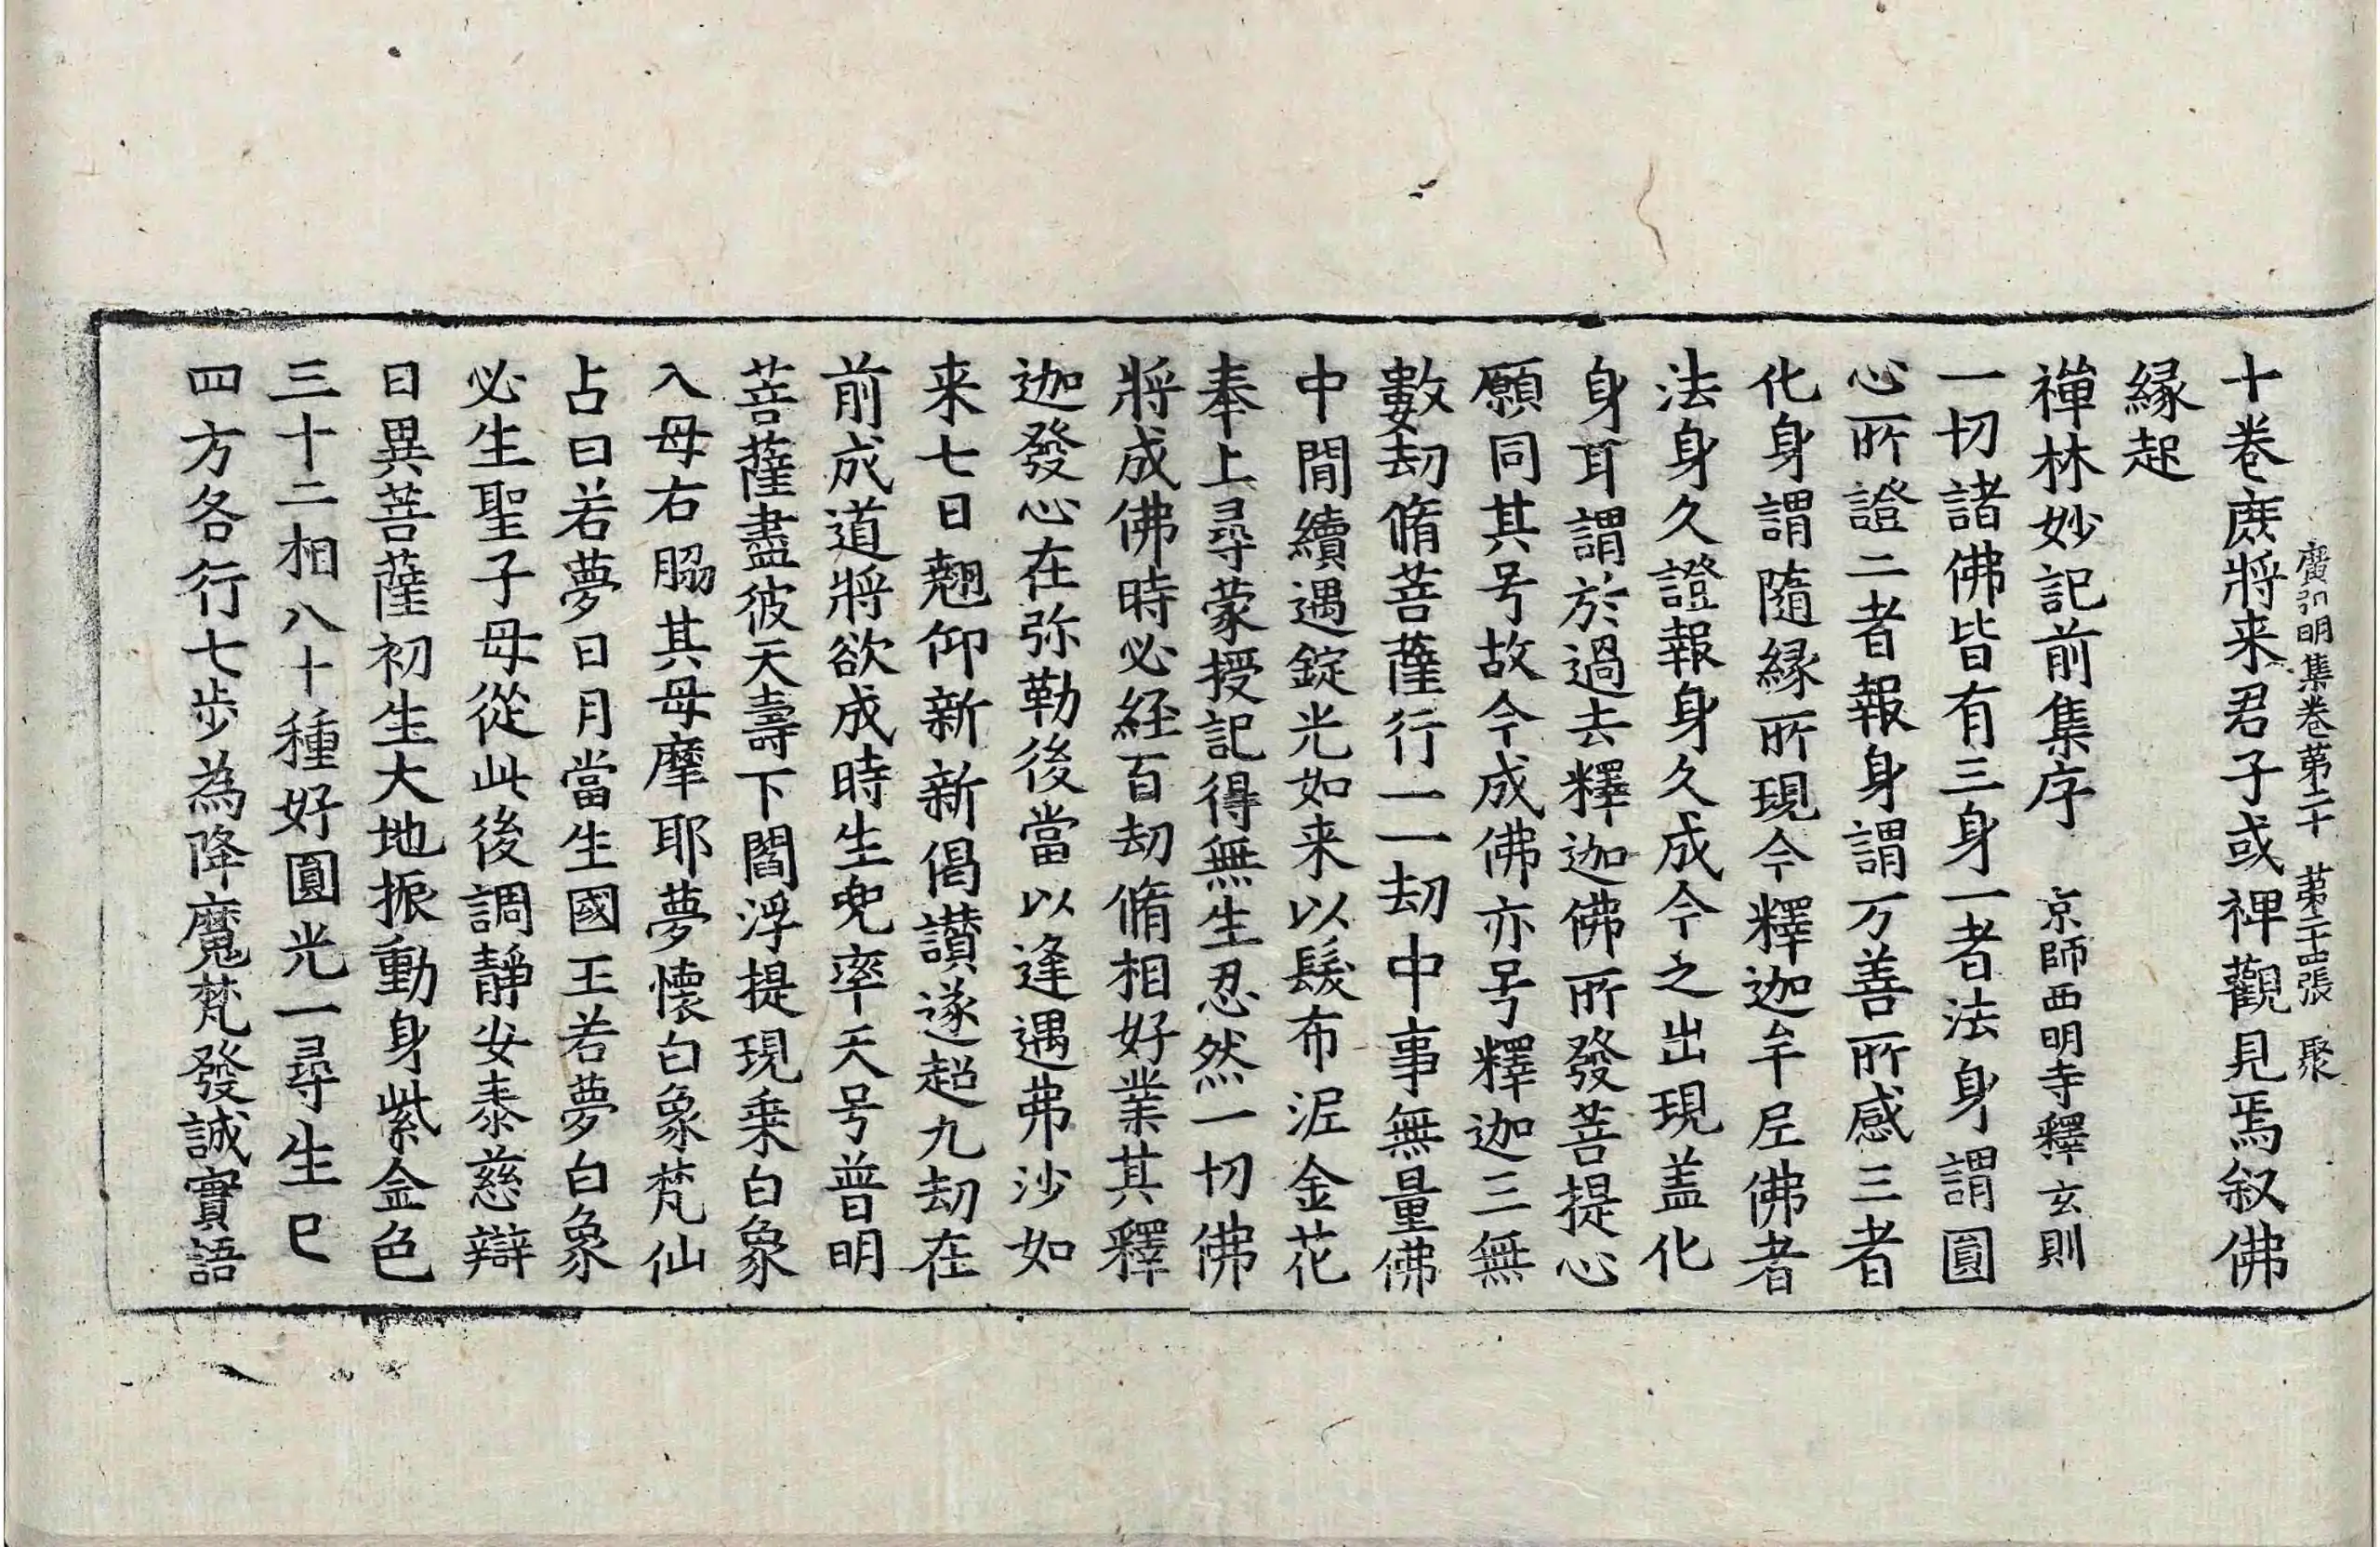 廣弘明集卷第二十 第二十四張 聚
十卷庶將来君子或禆觀見焉叙佛
緣起
禪林妙記前集序 京師西明寺釋玄則
一切諸佛皆有三身一者法身謂圓
心所證二者報身謂万善所感三者
化身謂隨緣所現今釋迦牟尼佛者
法身久證報身久成今之出現盖化
身耳謂於過去釋迦佛所發菩提心
願同其号故今成佛亦号釋迦三無
數劫脩菩薩行一一劫中事無量佛
中間續遇錠光如来以髮布泥金花
奉上尋蒙授記得無生忍然一切佛
將成佛時必經百劫脩相好業其釋
迦發心在弥勒後當以逢遇弗沙如
来七日翹仰新新偈讃遂超九劫在
前成道將欲成時生兜率天号普明
菩薩盡彼天壽下閻浮提現乗白象
入母右脇其母摩耶夢懷白象梵仙
占曰若夢日月當生國王若夢白象
必生聖子母從此後調靜安泰慈辯
日異菩薩初生大地振動身紫金色
三十二相八十種好圓光一尋生已
四方各行七步為降魔梵發誠實語